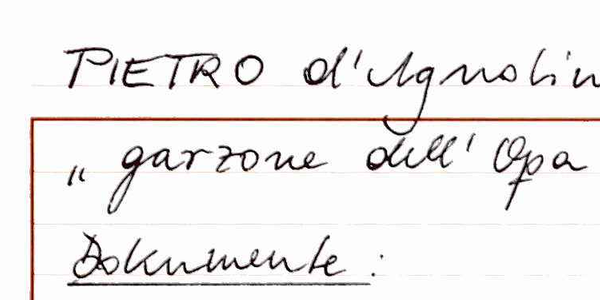 PIETRO d'Agnolin
„ garzone dell' Opa
Dokumente: